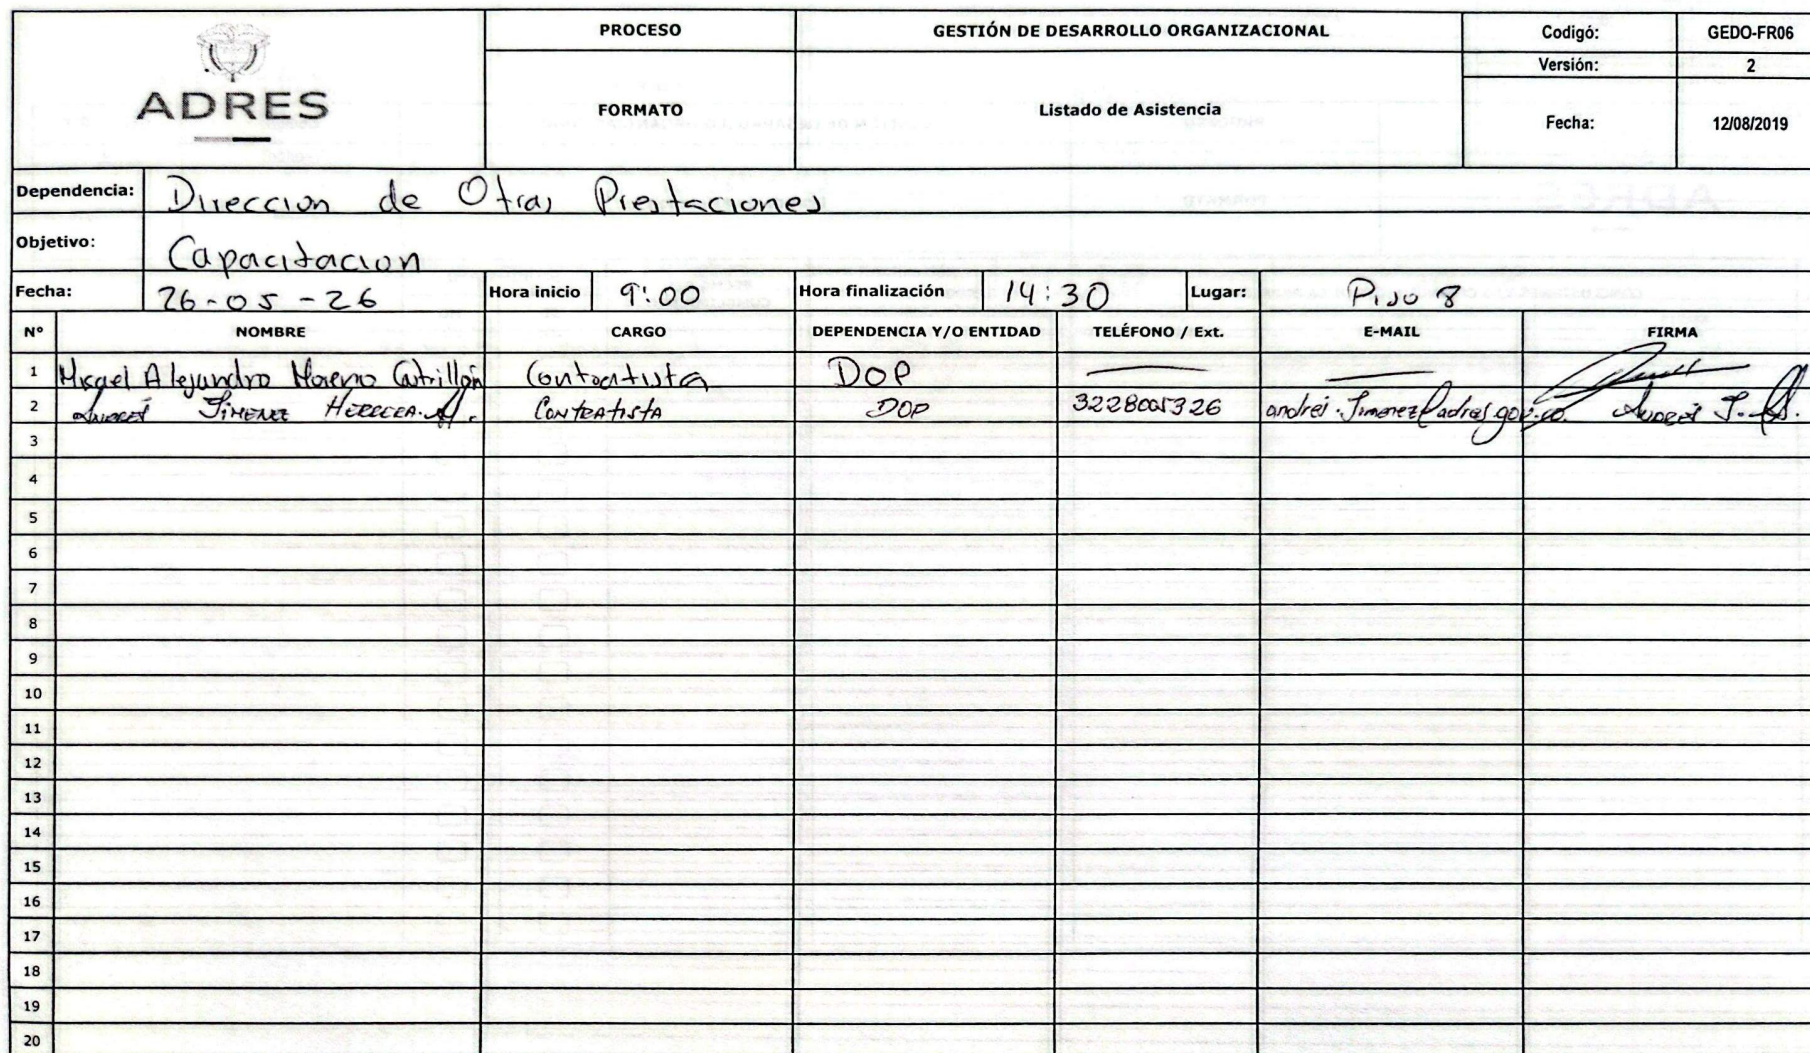 ADRES
PROCESO
GESTIÓN DE DESARROLLO ORGANIZACIONAL
Codigó:
GEDO-FR06
Versión:
2
FORMATO
Listado de Asistencia
Fecha:
12/08/2019
Dependencia: Direccion de Otras Prestaciones
Objetivo: Capacitacion
Fecha: 26-05-26 Hora inicio 9:00 Hora finalización 14:30 Lugar: Piso 8
Nº NOMBRE CARGO DEPENDENCIA Y/O ENTIDAD TELÉFONO / Ext. E-MAIL FIRMA
1 Alejandro Moreno Contratista DOP
2 JIMENEZ HERRERA Contratista DOP
3
4
5
6
7
8
9
10
11
12
13
14
15
16
17
18
19
20